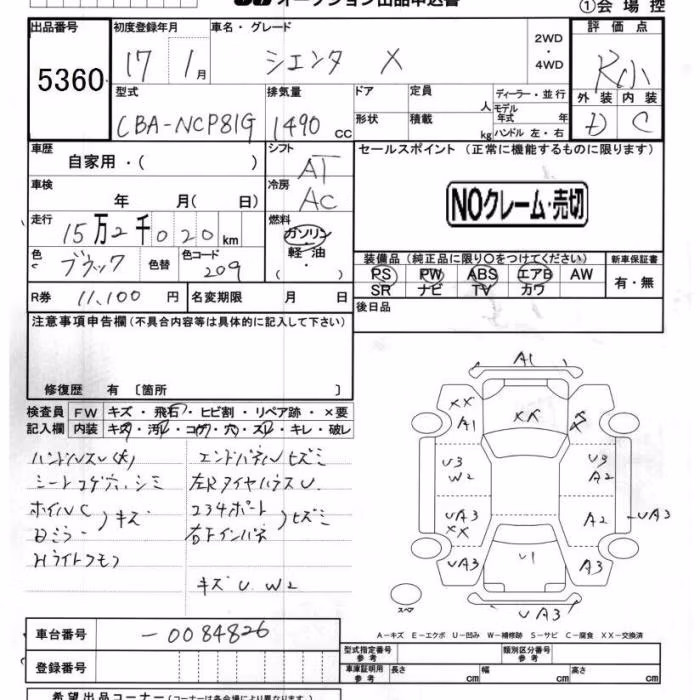 オークション出品申込書
①会場控
出品番号 初度登録年月 車名・グレード 評価点
5360 17 1月 シエンタ X 2WD・4WD R小
型式 排気量 ドア 定員 人 ディーラー・並行 外装 内装
モデル年式 年
CBA-NCP81G 1490cc 形状 積載 kg ハンドル 左・右 D C
車歴 自家用・( ) シフト AT セールスポイント (正常に機能するものに限ります)
車検 年 月( 日) 冷房 AC
NOクレーム・売切
走行 15万2千020km 燃料 ガソリン・軽油・( )
色 ブラック 色替 色コード 209
装備品(純正品に限り○をつけてください) 新車保証書
PS PW ABS エアB AW 有・無
SR ナビ TV カワ
R券 11,100円 名変期限 月 日
後日品
注意事項申告欄(不具合内容等は具体的に記入して下さい)
修復歴 有〔箇所 〕
検査員記入欄 FW キズ・飛石・ヒビ割・リペア跡・×要
内装 キズ・汚レ・コゲ・穴・スレ・キレ・破レ
ハンドルスレ(大) エンドパネルヒズミ
シートコゲ穴、シミ 左RタイヤハウスU
ホイルC
Bミラー
)キズ
234ポート
右Fインパネ
)ヒズミ
Hライトクモリ
キズ U W2
A1
XX A1 XX
U3 W2 U3 A2
UA3 XX A2 UA3
UA3 U1 A3
UA3
スペア
A-キズ E-エクボ U-凹み W-補修跡 S-サビ C-腐食 XX-交換済
車台番号 -0084826
型式指定番号 参考 類別区分番号 参考
登録番号
車庫証明用 参考 長さ cm 幅 cm 高さ cm
希望出品コーナー(コーナーは各会場により異なります。)